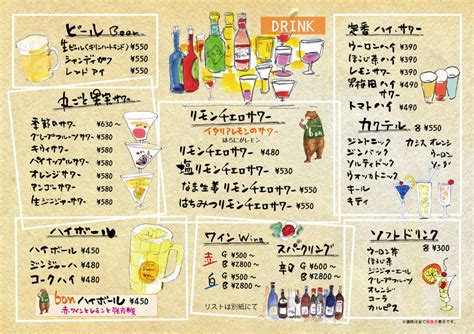 ビール Beer
生ビール(キリンハートランド) ¥550
シャンディガフ ¥550
レッドアイ ¥550
丸ごと果実サワー
季節のサワー ¥630～
グレープフルーツサワー ¥530
キウイサワー ¥530
パイナップルサワー ¥530
オレンジサワー ¥530
マンゴーサワー ¥530
生ジンジャーサワー ¥530
ハイボール
ハイボール ¥450
ジンジャーハイ ¥480
コークハイ ¥480
bon ハイボール ¥450
赤ワインとレモンと強炭酸
DRINK
リモンチェロサワー
イタリアレモンのサワー
ほろにがレモン
bon
リモンチェロサワー ¥480
塩リモンチェロサワー ¥530
なま生姜リモンチェロサワー ¥550
はちみつリモンチェロサワー ¥550
ワイン Wine
赤 G ¥500～
B ¥2800～
白 G ¥500～
B ¥2800～
スパークリング
G ¥600～
B ¥2800～
リストは別紙にて
定番ハイ・サワー
ウーロンハイ ¥390
ほうじ茶ハイ ¥390
レモンサワー ¥390
トマトハイ ¥450
カクテル 各¥550
ジントニック
ジンバック
ソルティドッグ
ウォッカトニック
キール
キティ
カシスオレンジ
ウーロン
ソーダ
ソフトドリンク
各¥300
ウーロン茶
ほうじ茶
ジンジャーエール
グレープフルーツ
オレンジ
コーラ
カルピス